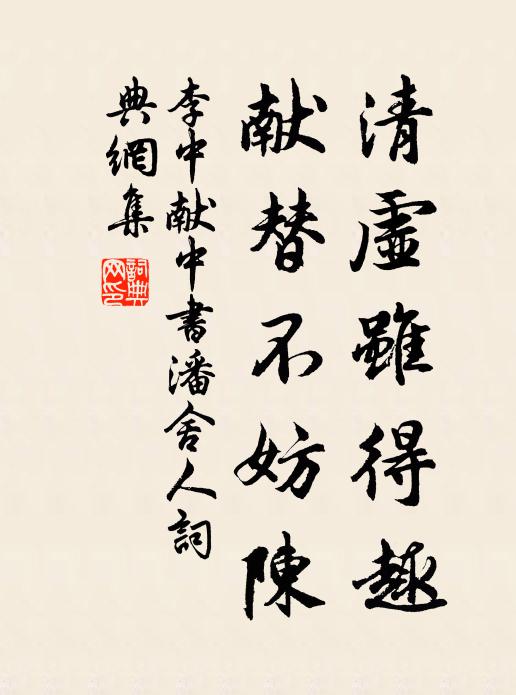 清虛雖得趣
献替不妨陳
李中献中書潘舍人詞
典網集
詞典
网印